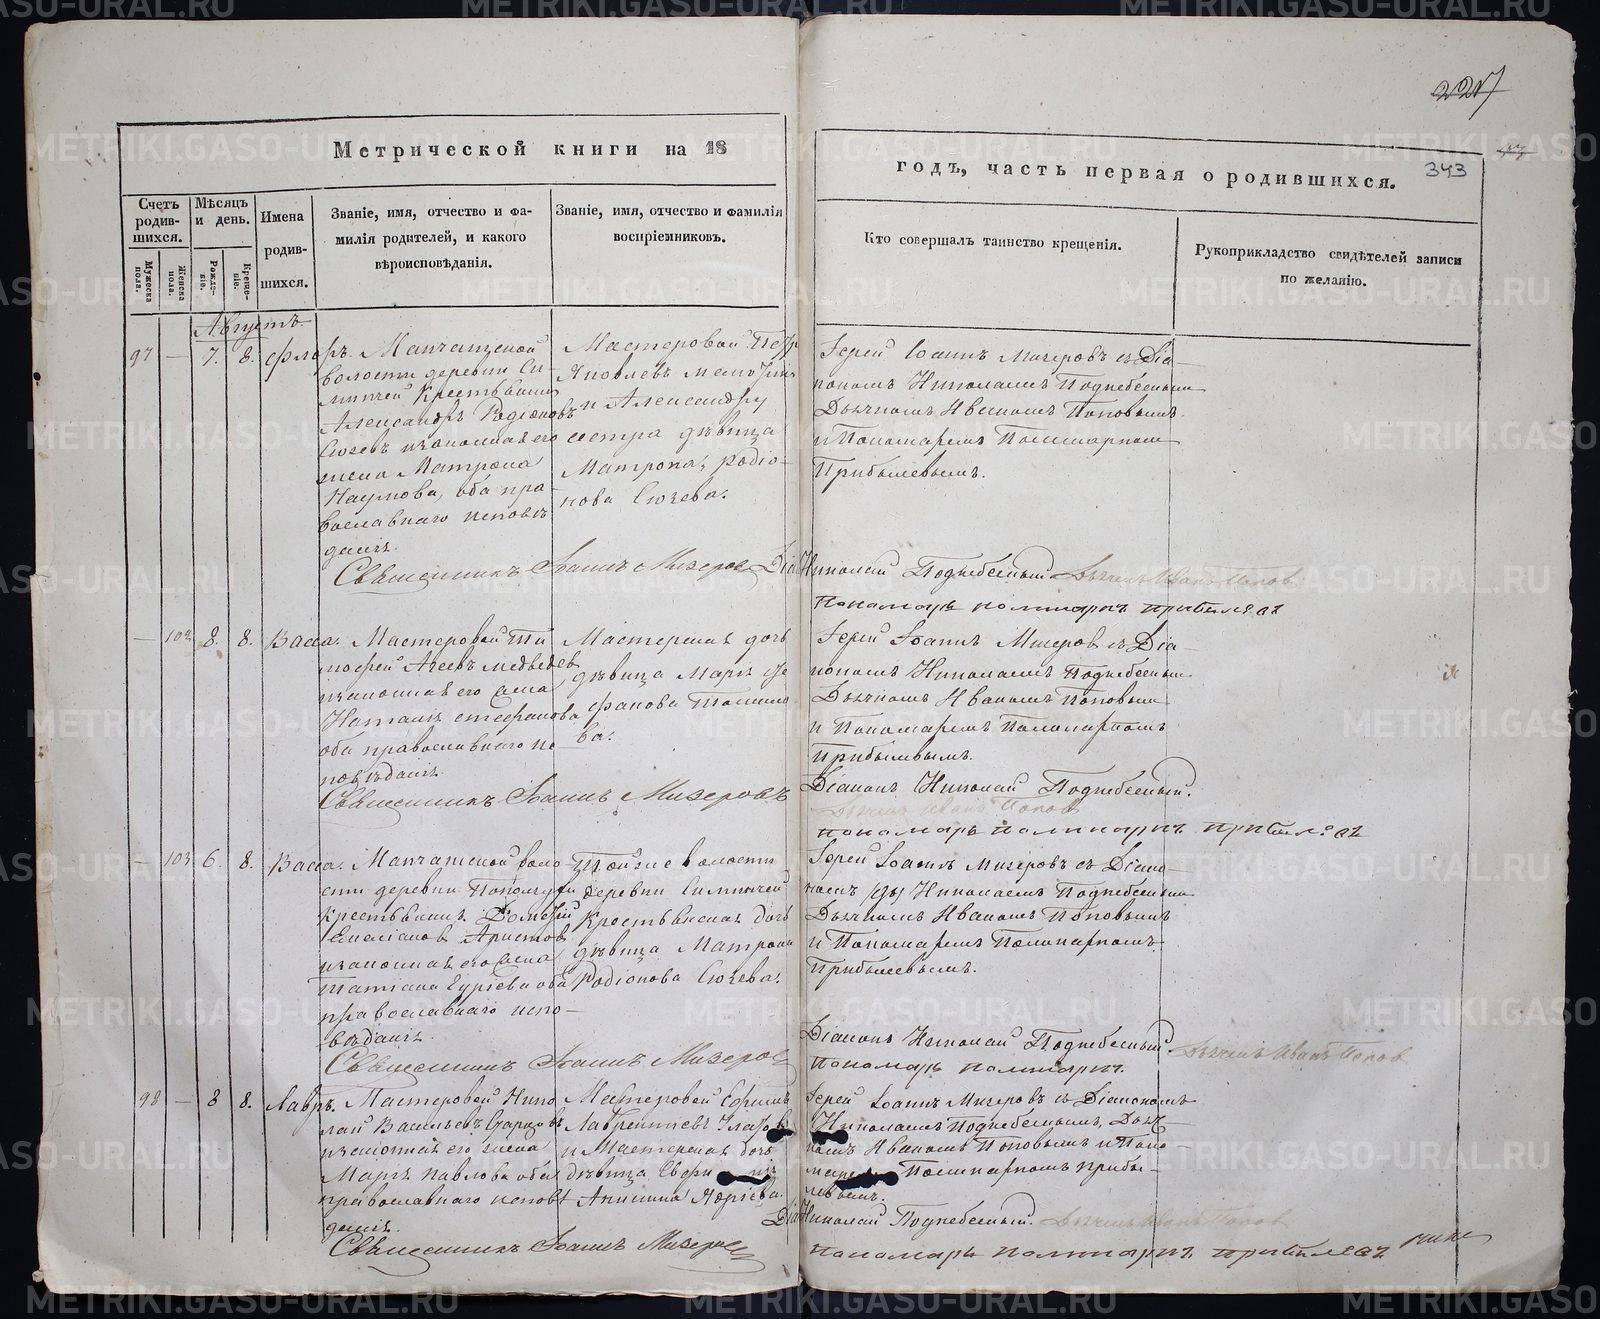 227
343
Метрической книги на 18
годъ, часть первая о родившихся.
Счетъ родив-шихся.
Мужеска пола.
Женска пола.
Мѣсяцъ и день.
Рожде-ніе.
Креще-ніе.
Имена родив-шихся.
Званіе, имя, отчество и фа-
милія родителей, и какого
вѣроисповѣданія.
Званіе, имя, отчество и фамилія
воспріемниковъ.
Кто совершалъ таинство крещенія.
Рукоприкладство свидѣтелей записи
по желанію.
Августъ
97 — 7. 8. Флоръ. Манчажской
волости деревни Си-
Крестьянинъ
Александръ Родіоновъ
Сюзевъ и законная его
жена Матрона
Наумова, оба пра-
вославнаго исповѣ
данія.
Мастеровой Петръ
Яковлевъ
и Александру
сестра дѣвица
Матрона, Родіо-
нова Сюзева.
Іерей Іоаннъ Мизеровъ съ Діа-
кономъ Николаемъ Поднебеснымъ
Дьячкомъ Иваномъ Поповымъ
и Пономаремъ Поликарпомъ
Прибылевымъ.
Священникъ Іоаннъ Мизеровъ Діак Николай Поднебесный Дьячекъ Иванъ Попов
Пономарь поликарпъ прибылевъ
— 102 8. 8. Васса. Мастеровой Ти
мофей Агеевъ Медведев
и законная его жена
Наталія Стефанова
оба православнаго ис
повѣданія
Мастерская дочь
дѣвица Марія Сте
фанова
ва.
Іерей Іоаннъ Мизеров съ Діа-
кономъ Николаемъ Поднебесным
Дьячкомъ Иваномъ Поповым
и Пономаремъ Поликарпомъ
Прибылевымъ.
Священникъ Іоаннъ Мизеровъ
Діаконъ Николай Поднебесный.
Дьячекъ Иванъ Попов
пономарь поликарпъ прибылевъ
— 103 6. 8. Васса. Манчажской воло-
сти деревни
Крестьянинъ Дометій
Емеліанов Аристов
и законная его жена
Татіана Гуріева оба
православнаго испо-
вѣданія.
Той же волости
деревни
Крестьянская дочь
дѣвица Матрона
Родіонова Сюзева.
Іерей Іоаннъ Мизеровъ съ Діако-
номъ Николаемъ Поднебесным
Дьячкомъ Иваномъ Поповымъ
и Пономаремъ Поликарпомъ
Прибылевымъ.
Священникъ Іоаннъ Мизеров
Діаконъ Николай Поднебесный. Дьячекъ Иванъ Попов
пономарь поликарпъ
98 — 8 8. Лавръ. Мастеровой Нико
лай Васильевъ
и законная его жена
Марія Павлова оба
православнаго исповѣ
данія.
Мастеровой Ефимъ
Лаврентіевъ
и Мастерская дочь
дѣвица
Іерей Іоаннъ Мизеровъ съ Діакономъ
Николаемъ Поднебеснымъ, Дьяч-
комъ Иваномъ Поповымъ и Поно-
Поликарпомъ Прибы-
левымъ.
Священникъ Іоаннъ Мизеров
Діак Николай Поднебесный. Дьячекъ Иванъ Попов
пономарь поликарпъ прибылевъ
METRIKI.GASO-URAL.RU